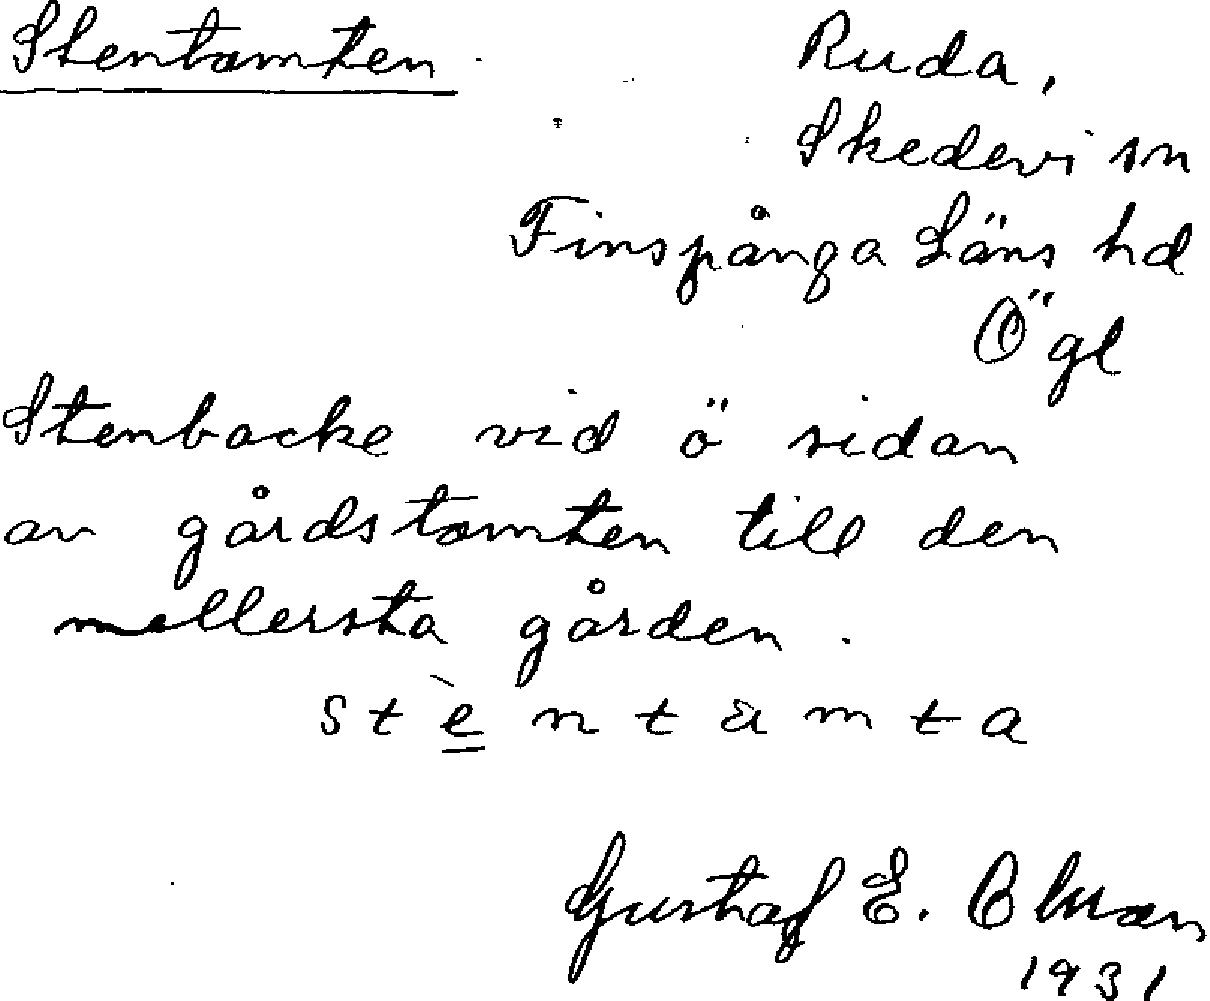 Stentomten
Ruda,
Skedevi sn
Finspånga Läns hd
Ögl
Stenbacke vid ö sidan
av gårdstomten till den
mellersta gården.
s t è n t å m t a
Gustaf E.
1931